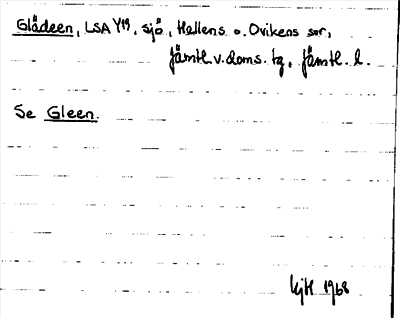 Glädeen, LSA Y19, sjö, Hallens o. Ovikens snr,
Jämtl. v. doms. tg, Jämtl. l.
Se Gleen.
1968